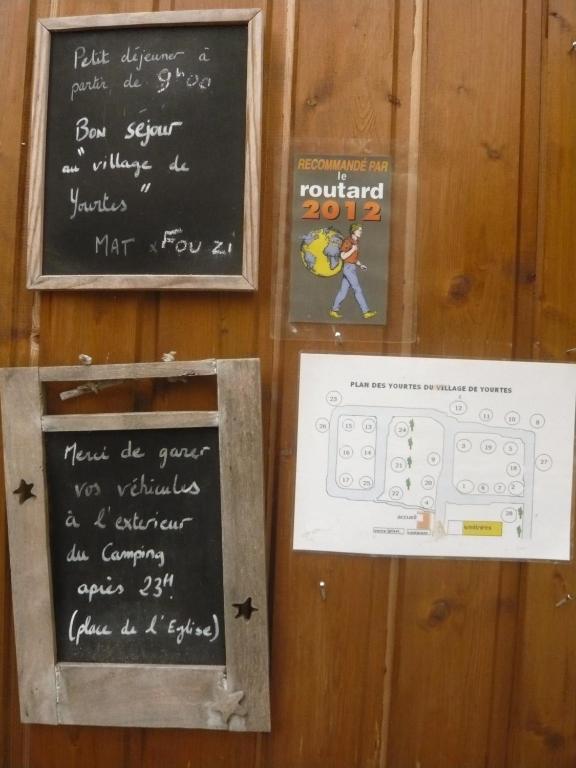 Petit déjeuner à
partir de 9h00
Bon séjour
au "village de
Yourtes"
MAT x FOUZI
RECOMMANDÉ PAR
le
routard
2012
Merci de garer
vos véhicules
à l'exterieur
du Camping
après 23H.
(place de l'Eglise)
PLAN DES YOURTES DU VILLAGE DE YOURTES
23
12
11
10
8
26
15
13
24
3
19
5
27
16
14
21
9
18
17
25
22
20
1
6
7
2
4
28
accueil
sanitaires